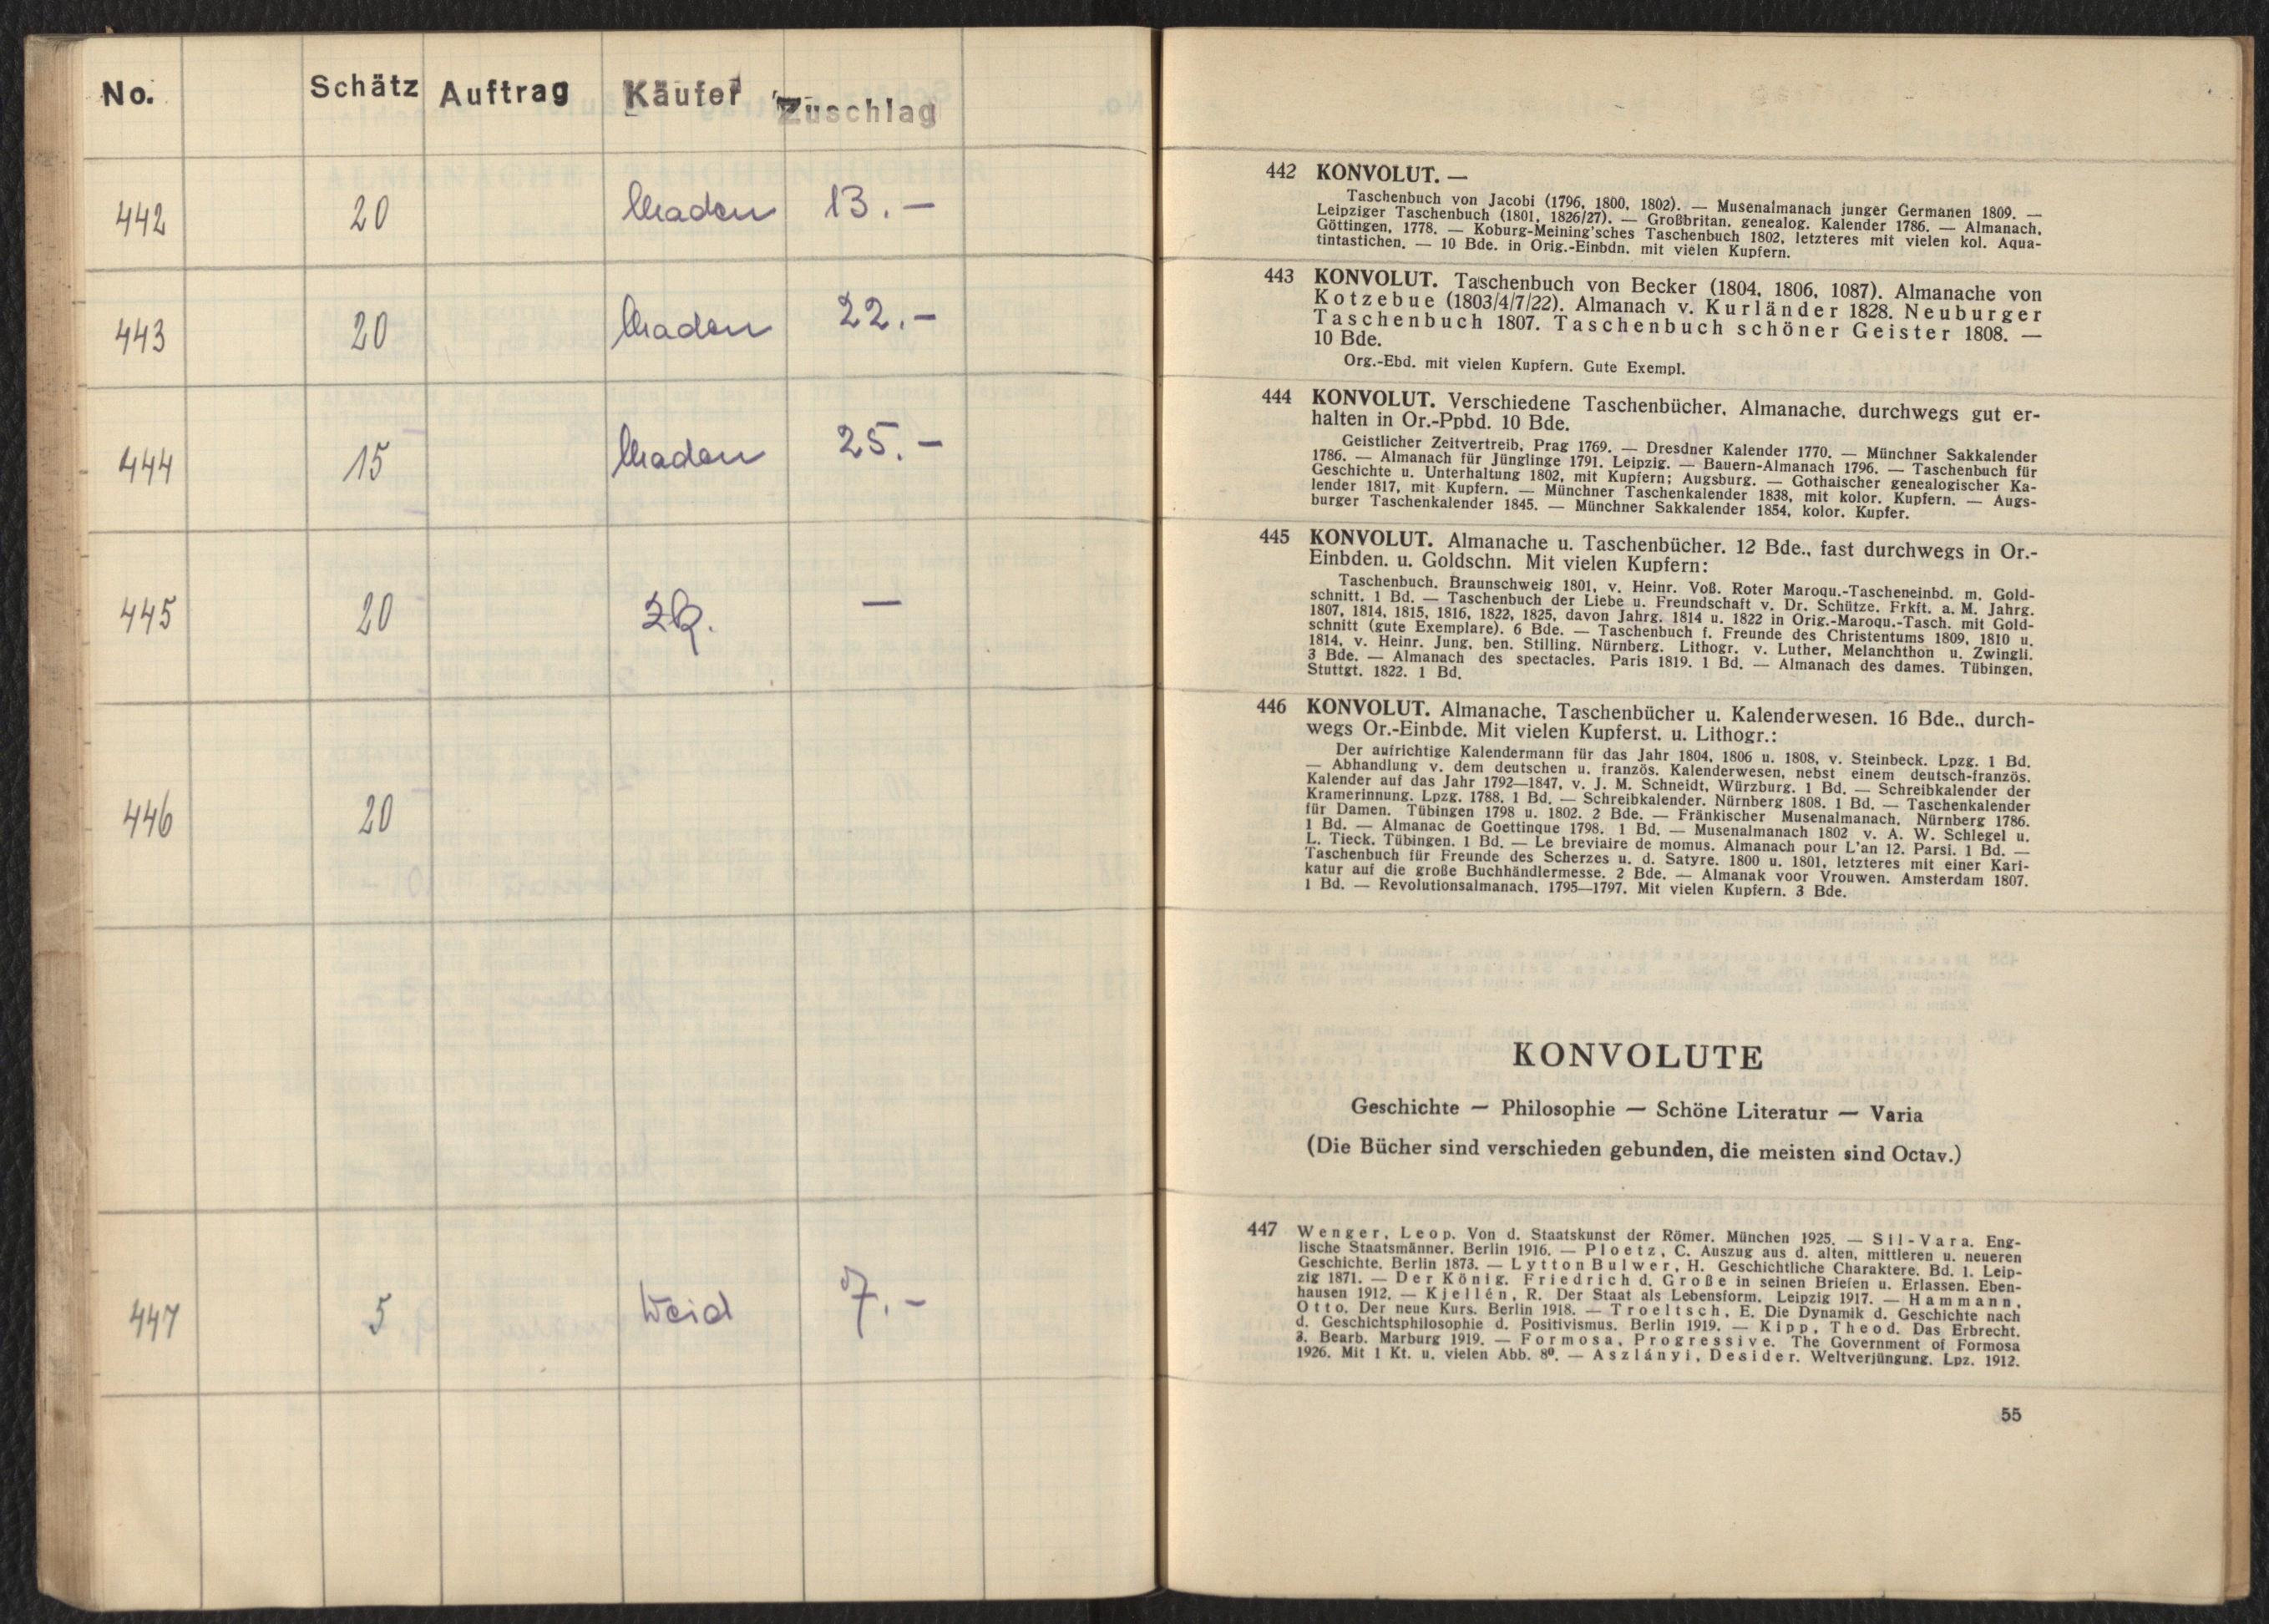 No. Schätz Auftrag Käufer Zuschlag
442 20 13.—
443 20 22.—
444 15 25.—
445 20 —
446 20
447 5 Weid 7.—
442 KONVOLUT. —
Taschenbuch von Jacobi (1796, 1800, 1802). — Musenalmanach junger Germanen 1809. —
Leipziger Taschenbuch (1801, 1826/27). — Großbritan. genealog. Kalender 1786. — Almanach,
Göttingen, 1778. — Koburg-Meining'sches Taschenbuch 1802, letzteres mit vielen kol. Aqua-
tintastichen. — 10 Bde. in Orig.-Einbdn. mit vielen Kupfern.
443 KONVOLUT. Taschenbuch von Becker (1804, 1806, 1087). Almanache von
Kotzebue (1803/4/7/22). Almanach v. Kurländer 1828. Neuburger
Taschenbuch 1807. Taschenbuch schöner Geister 1808. —
10 Bde.
Org.-Ebd. mit vielen Kupfern. Gute Exempl.
444 KONVOLUT. Verschiedene Taschenbücher, Almanache, durchwegs gut er-
halten in Or.-Ppbd. 10 Bde.
Geistlicher Zeitvertreib, Prag 1769. — Dresdner Kalender 1770. — Münchner Sakkalender
1786. — Almanach für Jünglinge 1791. Leipzig. — Bauern-Almanach 1796. — Taschenbuch für
Geschichte u. Unterhaltung 1802, mit Kupfern; Augsburg. — Gothaischer genealogischer Ka-
lender 1817, mit Kupfern. — Münchner Taschenkalender 1838, mit kolor. Kupfern. — Augs-
burger Taschenkalender 1845. — Münchner Sakkalender 1854, kolor. Kupfer.
445 KONVOLUT. Almanache u. Taschenbücher. 12 Bde., fast durchwegs in Or.-
Einbden. u. Goldschn. Mit vielen Kupfern:
Taschenbuch. Braunschweig 1801, v. Heinr. Voß. Roter Maroqu.-Tascheneinbd. m. Gold-
schnitt. 1 Bd. — Taschenbuch der Liebe u. Freundschaft v. Dr. Schütze. Frkft. a. M. Jahrg.
1807, 1814, 1815, 1816, 1822, 1825, davon Jahrg. 1814 u. 1822 in Orig.-Maroqu.-Tasch. mit Gold-
schnitt (gute Exemplare). 6 Bde. — Taschenbuch f. Freunde des Christentums 1809, 1810 u.
1814, v. Heinr. Jung, ben. Stilling. Nürnberg. Lithogr. v. Luther, Melanchthon u. Zwingli.
3 Bde. — Almanach des spectacles. Paris 1819. 1 Bd. — Almanach des dames. Tübingen,
Stuttgt. 1822. 1 Bd.
446 KONVOLUT. Almanache, Taschenbücher u. Kalenderwesen. 16 Bde., durch-
wegs Or.-Einbde. Mit vielen Kupferst. u. Lithogr.:
Der aufrichtige Kalendermann für das Jahr 1804, 1806 u. 1808, v. Steinbeck. Lpzg. 1 Bd.
— Abhandlung v. dem deutschen u. französ. Kalenderwesen, nebst einem deutsch-französ.
Kalender auf das Jahr 1792—1847, v. J. M. Schneidt, Würzburg. 1 Bd. — Schreibkalender der
Kramerinnung. Lpzg. 1788. 1 Bd. — Schreibkalender. Nürnberg 1808. 1 Bd. — Taschenkalender
für Damen. Tübingen 1798 u. 1802. 2 Bde. — Fränkischer Musenalmanach. Nürnberg 1786.
1 Bd. — Almanac de Goettinque 1798. 1 Bd. — Musenalmanach 1802 v. A. W. Schlegel u.
L. Tieck. Tübingen. 1 Bd. — Le breviaire de momus. Almanach pour L'an 12. Parsi. 1 Bd. —
Taschenbuch für Freunde des Scherzes u. d. Satyre. 1800 u. 1801, letzteres mit einer Kari-
katur auf die große Buchhändlermesse. 2 Bde. — Almanak voor Vrouwen. Amsterdam 1807.
1 Bd. — Revolutionsalmanach. 1795—1797. Mit vielen Kupfern. 3 Bde.
KONVOLUTE
Geschichte — Philosophie — Schöne Literatur — Varia
(Die Bücher sind verschieden gebunden, die meisten sind Octav.)
447 Wenger, Leop. Von d. Staatskunst der Römer. München 1925. — Sil-Vara. Eng-
lische Staatsmänner. Berlin 1916. — Ploetz, C. Auszug aus d. alten, mittleren u. neueren
Geschichte. Berlin 1873. — Lytton Bulwer, H. Geschichtliche Charaktere. Bd. 1. Leip-
zig 1871. — Der König. Friedrich d. Große in seinen Briefen u. Erlassen. Eben-
hausen 1912. — Kjellén, R. Der Staat als Lebensform. Leipzig 1917. — Hammann,
Otto. Der neue Kurs. Berlin 1918. — Troeltsch, E. Die Dynamik d. Geschichte nach
d. Geschichtsphilosophie d. Positivismus. Berlin 1919. — Kipp, Theod. Das Erbrecht.
3. Bearb. Marburg 1919. — Formosa, Progressive. The Government of Formosa
1926. Mit 1 Kt. u. vielen Abb. 8⁰. — Aszlányi, Desider. Weltverjüngung. Lpz. 1912.
55